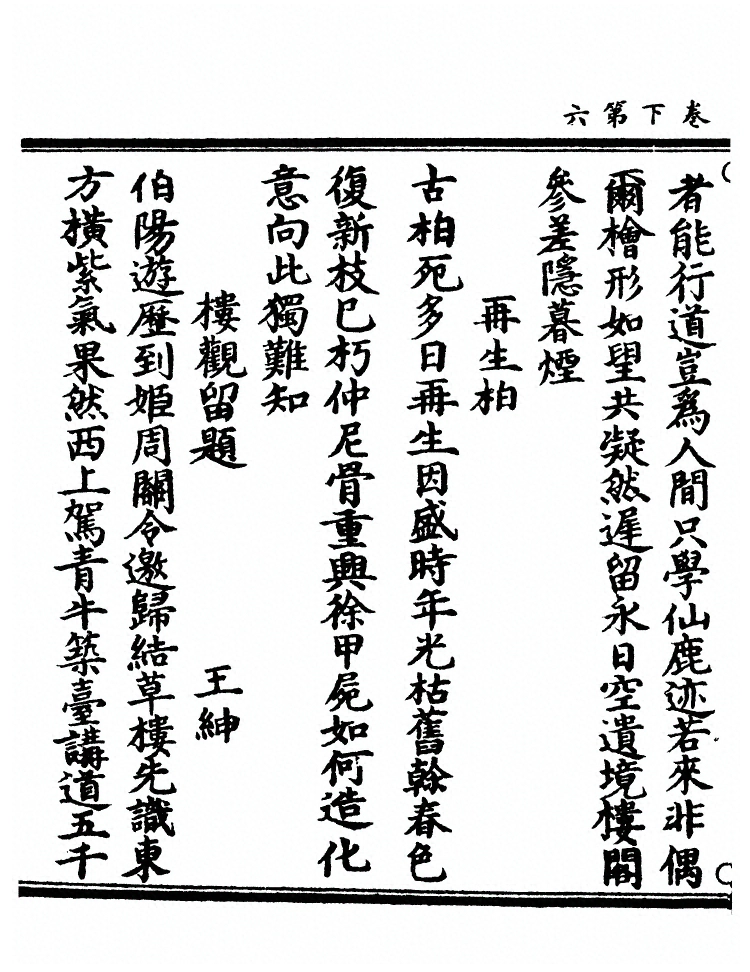 卷下第六
者能行道豈為人間只學仙鹿迹若來非偶
爾檜形如望共凝然遲留永日空遺境樓閣
參差隱暮煙
再生柏
古柏死多日再生因盛時年光枯舊榦春色
復新枝已朽仲尼骨重興徐甲屍如何造化
意向此獨難知
樓觀留題 王紳
伯陽遊歷到姬周關令邀歸結草樓先識東
方橫紫氣果然西上駕青牛築臺講道五千